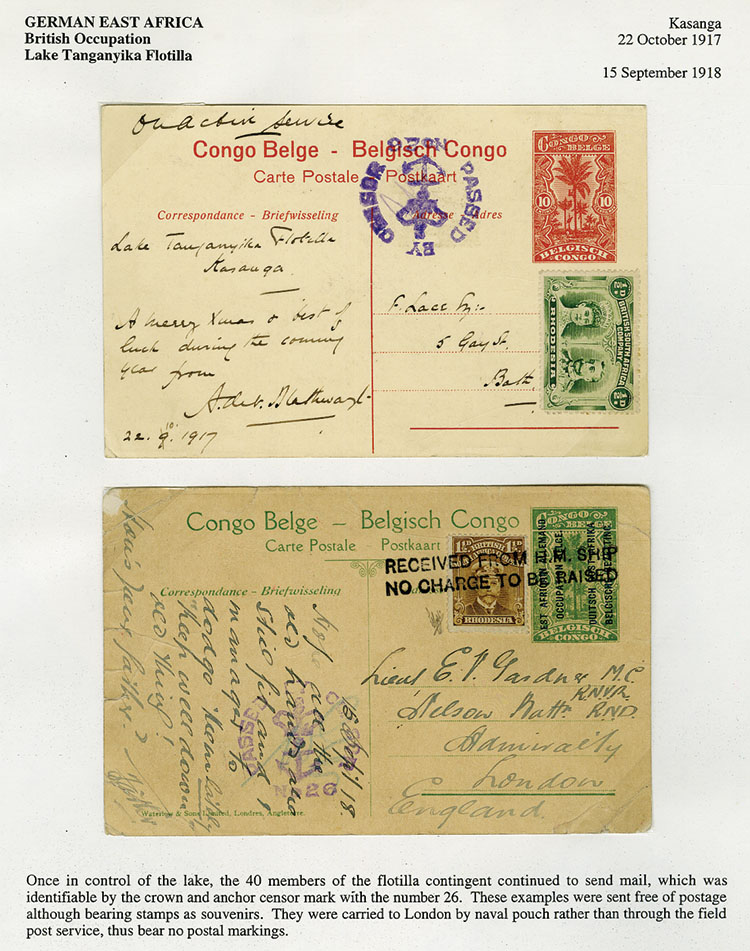 GERMAN EAST AFRICA
British Occupation
Lake Tanganyika Flotilla
Kasanga
22 October 1917
15 September 1918
On Active Service
Congo Belge - Belgisch Congo
Carte Postale Postkaart
Correspondance - Briefwisseling
Adresse - Adres
PASSED BY CENSOR
CONGO BELGE
10 10
BELGISCH CONGO
Lake Tanganyika Flotilla
Kasanga
A merry Xmas & best of
luck during the coming
year from
22. 10. 1917
F. Lace Esq:-
5 Gay St.
Bath
BRITISH SOUTH AFRICA
COMPANY
RHODESIA
½D ½D
Congo Belge – Belgisch Congo
Carte Postale Postkaart
Correspondance - Briefwisseling
RECEIVED FROM H.M. SHIP
NO CHARGE TO BE RAISED
BRITISH
RHODESIA
CONGO BELGE
EST AFRICAIN ALLEMAND
OCCUPATION BELGE
DUITSCH OOST AFRIKA
BELGISCHE BEZETTING
BELGISCH CONGO
15 Sept 18.
old hand and
still fit and
manages to
dodge
Keep well down
old thing!
How's your father?
PASSED
No 26
Lieut E. V. Gardner M.C.
RNVR.
Nelson Battn RND.
Admiralty
London
England.
Waterlow & Sons Limited, Londres, Angleterre.
Once in control of the lake, the 40 members of the flotilla contingent continued to send mail, which was
identifiable by the crown and anchor censor mark with the number 26. These examples were sent free of postage
although bearing stamps as souvenirs. They were carried to London by naval pouch rather than through the field
post service, thus bear no postal markings.